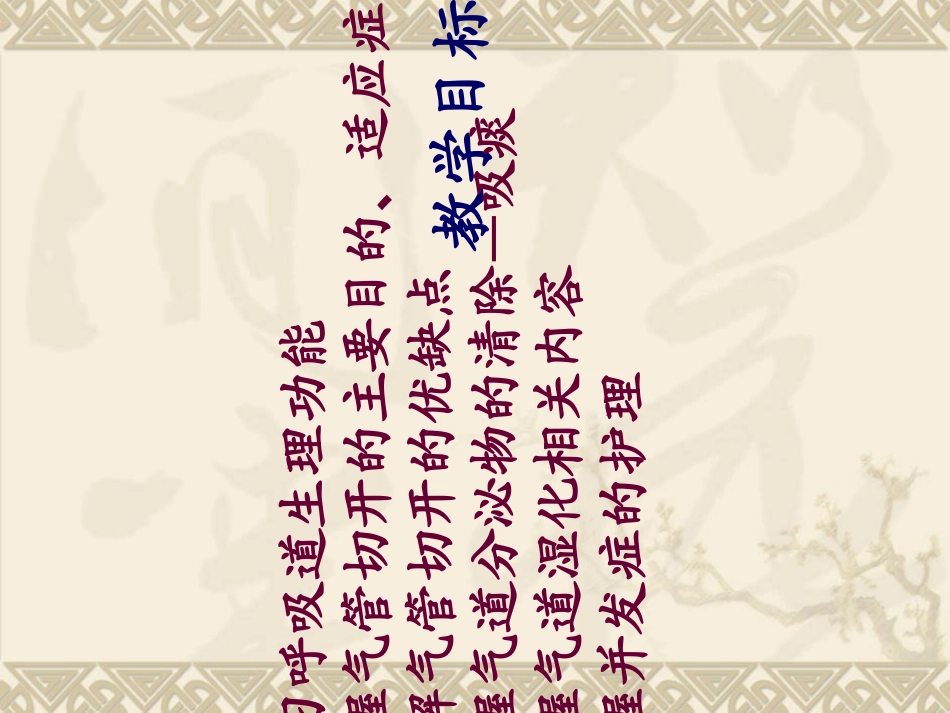 教学目标
呼吸道生理功能
握气管切开的主要目的、适应症
解气管切开的优缺点
握气道分泌物的清除—吸痰
握气道湿化相关内容
握并发症的护理